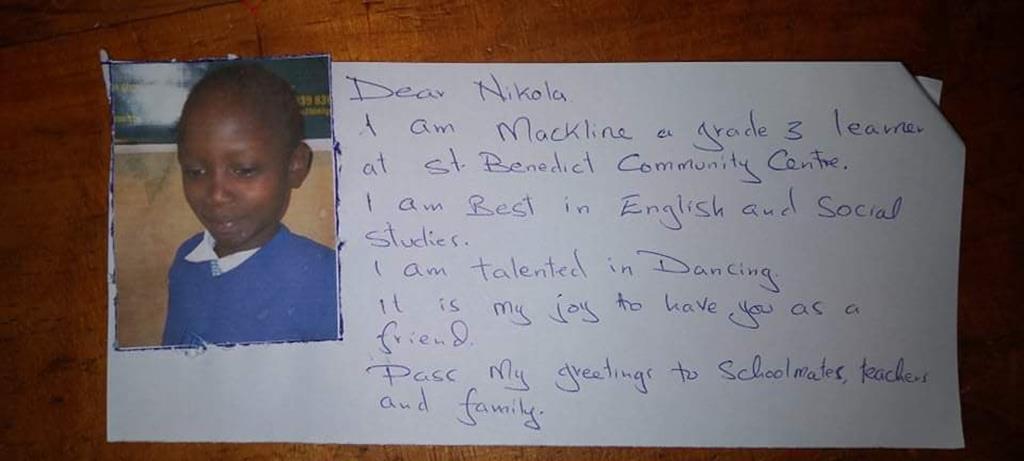 Dear Nikola
I am Mackline a grade 3 learner
at St. Benedict Community Centre.
I am Best in English and Social
Studies.
I am talented in Dancing.
It is my joy to have you as a
friend.
Pass My greetings to Schoolmates, teachers
and family.
39 83